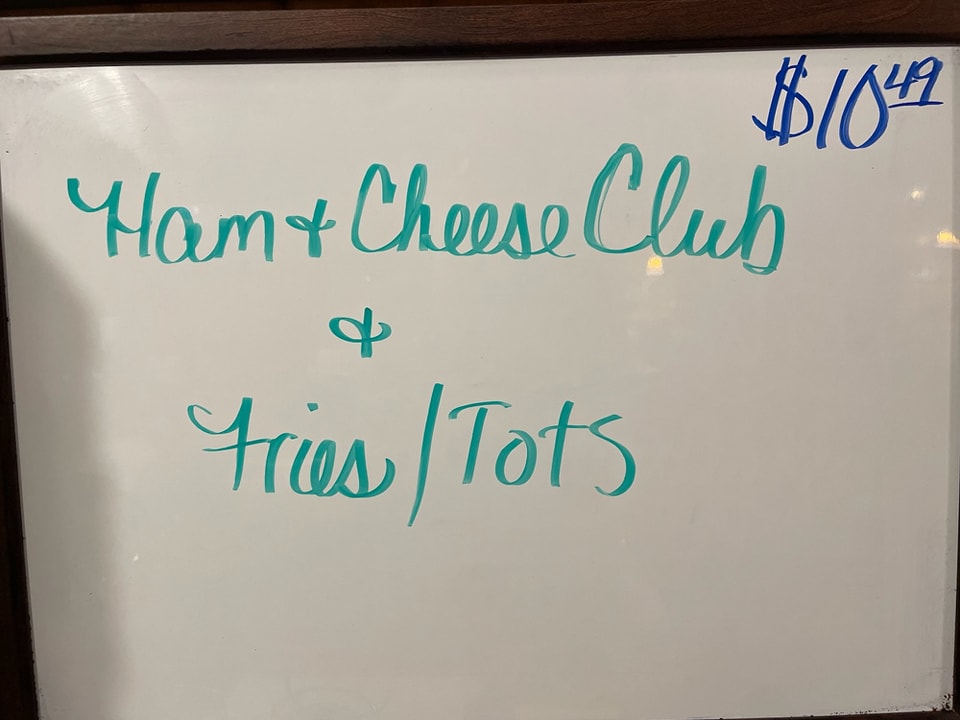 $10.49
Ham & Cheese Club
&
Fries/Tots